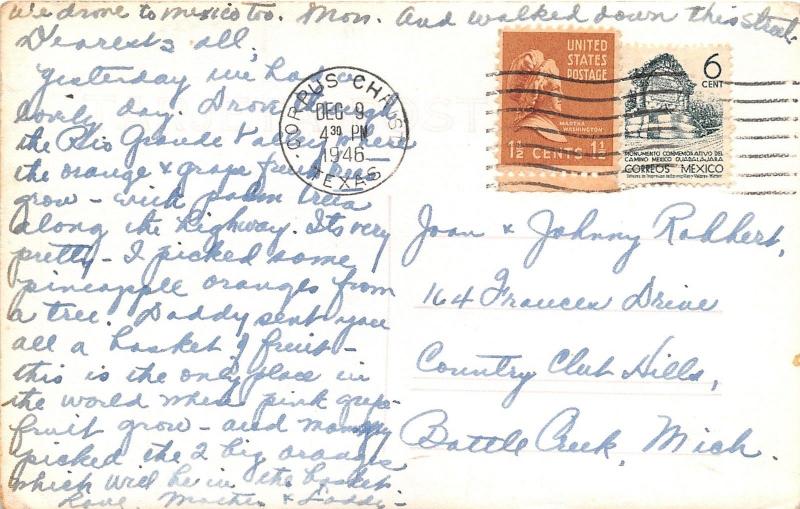 We drove to Mexico too. Mon. And walked down this street.
Dearests all,
Yesterday we had a
lovely day. Drove through
the Rio Grande Valley where
the orange & grape fruit trees
grow - with palm trees
along the highway. Its very
pretty - I picked some
pineapple oranges from
a tree. Daddy sent you
all a basket of fruit -
this is the only place in
the world where pink grape-
fruit grow - and mommy
picked the 2 big oranges
which will be in the basket.
Love, Mother & Daddy -
CORPUS CHRISTI
DEC 9
4 30 PM
1946
TEXAS
UNITED
STATES
POSTAGE
MARTHA
WASHINGTON
1½ CENTS 1½
6
CENT
MONUMENTO CONMEMORATIVO DEL
CAMINO MEXICO GUADALAJARA
CORREOS MEXICO
Joan & Johnny Robbert,
164 Frances Drive
Country Club Hills,
Battle Creek, Mich.